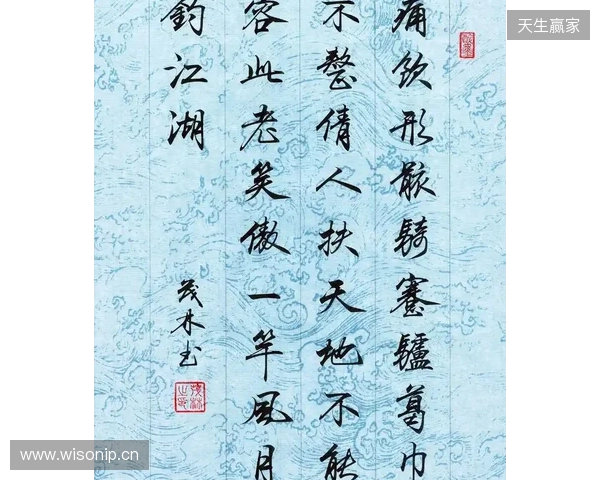 天生赢家
痛飲形骸騎蹇驢葛巾
不整倩人扶天地不能
容此老笑傲一竿風月
釣江湖
茂林书
www.wisonip.cn